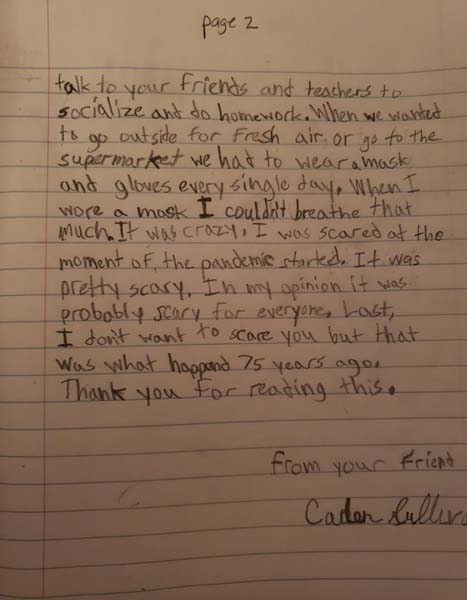 page 2
talk to your friends and teachers to
socialize and do homework. When we wanted
to go outside for fresh air. or go to the
supermarket we had to wear a mask
and gloves every single day. When I
wore a mask I couldn't breathe that
much. It was crazy. I was scared at the
moment of, the pandemic started. It was
pretty scary. In my opinion it was
probably scary for everyone. Last,
I don't want to scare you but that
was what happend 75 years ago.
Thank you for reading this.
from your friend
Caden